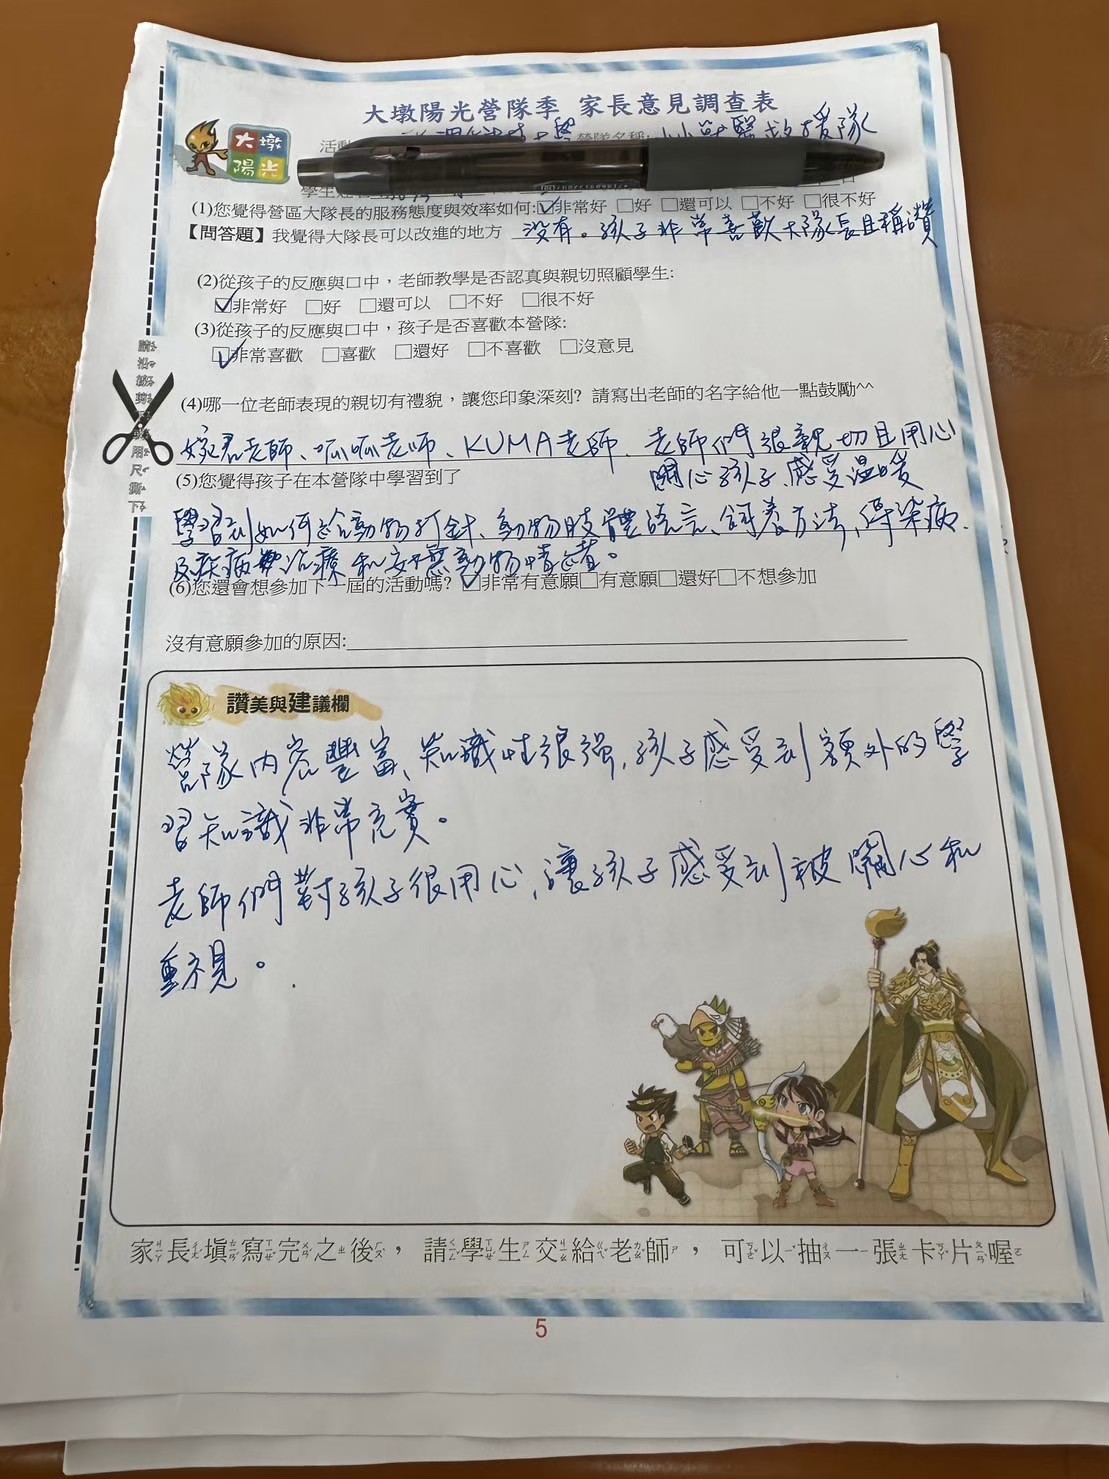 大墩陽光營隊季 家長意見調查表
大墩
陽光
營隊名稱: 小小獸醫救援隊
(1)您覺得營區大隊長的服務態度與效率如何:☑非常好 □好 □還可以 □不好 □很不好
【問答題】我覺得大隊長可以改進的地方 沒有。孩子非常喜歡大隊長且稱讚
(2)從孩子的反應與口中,老師教學是否認真與親切照顧學生:
☑非常好 □好 □還可以 □不好 □很不好
(3)從孩子的反應與口中,孩子是否喜歡本營隊:
☑非常喜歡 □喜歡 □還好 □不喜歡 □沒意見
(4)哪一位老師表現的親切有禮貌,讓您印象深刻? 請寫出老師的名字給他一點鼓勵^^
老師、呱呱老師、KUMA老師、老師們很親切且用心
關心孩子、感受溫暖
(5)您覺得孩子在本營隊中學習到了
學習到如何給動物打針、動物肢體語言、飼養方法、傳染病、
及疾病治療和安撫動物情緒。
(6)您還會想參加下一屆的活動嗎? ☑非常有意願□有意願□還好□不想參加
沒有意願參加的原因:
讚美與建議欄
營隊內容豐富、知識性很強,孩子感受到額外的學
習知識非常充實。
老師們對孩子很用心,讓孩子感受到被關心和
重視。
家長填寫完之後,請學生交給老師,可以抽一張卡片喔
5